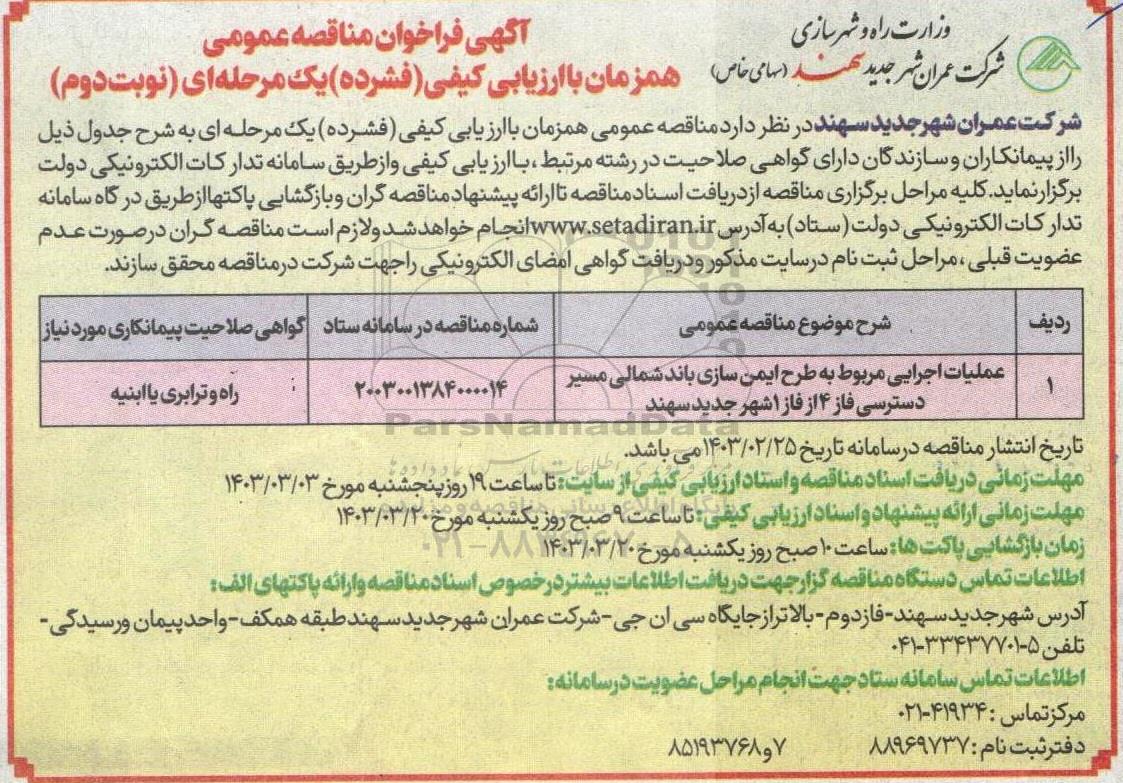 وزارت راه و شهرسازی
شرکت عمران شهر جدید سهند (سهامی خاص)
آگهی فراخوان مناقصه عمومی
همزمان با ارزیابی کیفی (فشرده) یک مرحله‌ای (نوبت دوم)
شرکت عمران شهر جدید سهند در نظر دارد مناقصه عمومی همزمان با ارزیابی کیفی (فشرده) یک مرحله ای به شرح جدول ذیل
را از پیمانکاران و سازندگان دارای گواهی صلاحیت در رشته مرتبط ، با ارزیابی کیفی و از طریق سامانه تدارکات الکترونیکی دولت
برگزار نماید. کلیه مراحل برگزاری مناقصه از دریافت اسناد مناقصه تا ارائه پیشنهاد مناقصه گران و بازگشایی پاکتها از طریق درگاه سامانه
تدارکات الکترونیکی دولت (ستاد) به آدرس www.setadiran.ir انجام خواهد شد و لازم است مناقصه گران در صورت عدم
عضویت قبلی ، مراحل ثبت نام در سایت مذکور و دریافت گواهی امضای الکترونیکی را جهت شرکت در مناقصه محقق سازند.
ردیف شرح موضوع مناقصه عمومی شماره مناقصه در سامانه ستاد گواهی صلاحیت پیمانکاری مورد نیاز
۱ عملیات اجرایی مربوط به طرح ایمن سازی باند شمالی مسیر دسترسی فاز ۴ از فاز ۱ شهر جدید سهند ۲۰۰۳۰۰۱۳۸۴۰۰۰۰۱۴ راه و ترابری یا ابنیه
ParsNamadData
تاریخ انتشار مناقصه در سامانه تاریخ ۱۴۰۳/۰۲/۲۵ می باشد.
مهلت زمانی دریافت اسناد مناقصه و اسناد ارزیابی کیفی از سایت: تا ساعت ۱۹ روز پنجشنبه مورخ ۱۴۰۳/۰۳/۰۳
مهلت زمانی ارائه پیشنهاد و اسناد ارزیابی کیفی: تا ساعت ۹ صبح روز یکشنبه مورخ ۱۴۰۳/۰۳/۲۰
زمان بازگشایی پاکت ها: ساعت ۱۰ صبح روز یکشنبه مورخ ۱۴۰۳/۰۳/۲۰
اطلاعات تماس دستگاه مناقصه گزار جهت دریافت اطلاعات بیشتر در خصوص اسناد مناقصه و ارائه پاکتهای الف:
آدرس شهر جدید سهند-فاز دوم-بالاتر از جایگاه سی ان جی-شرکت عمران شهر جدید سهند طبقه همکف-واحد پیمان و رسیدگی-
تلفن ۵-۳۳۴۳۷۷۰۱-۰۴۱
اطلاعات تماس سامانه ستاد جهت انجام مراحل عضویت در سامانه:
مرکز تماس : ۴۱۹۳۴-۰۲۱
دفتر ثبت نام : ۸۸۹۶۹۷۳۷ ۷ و ۸۵۱۹۳۷۶۸